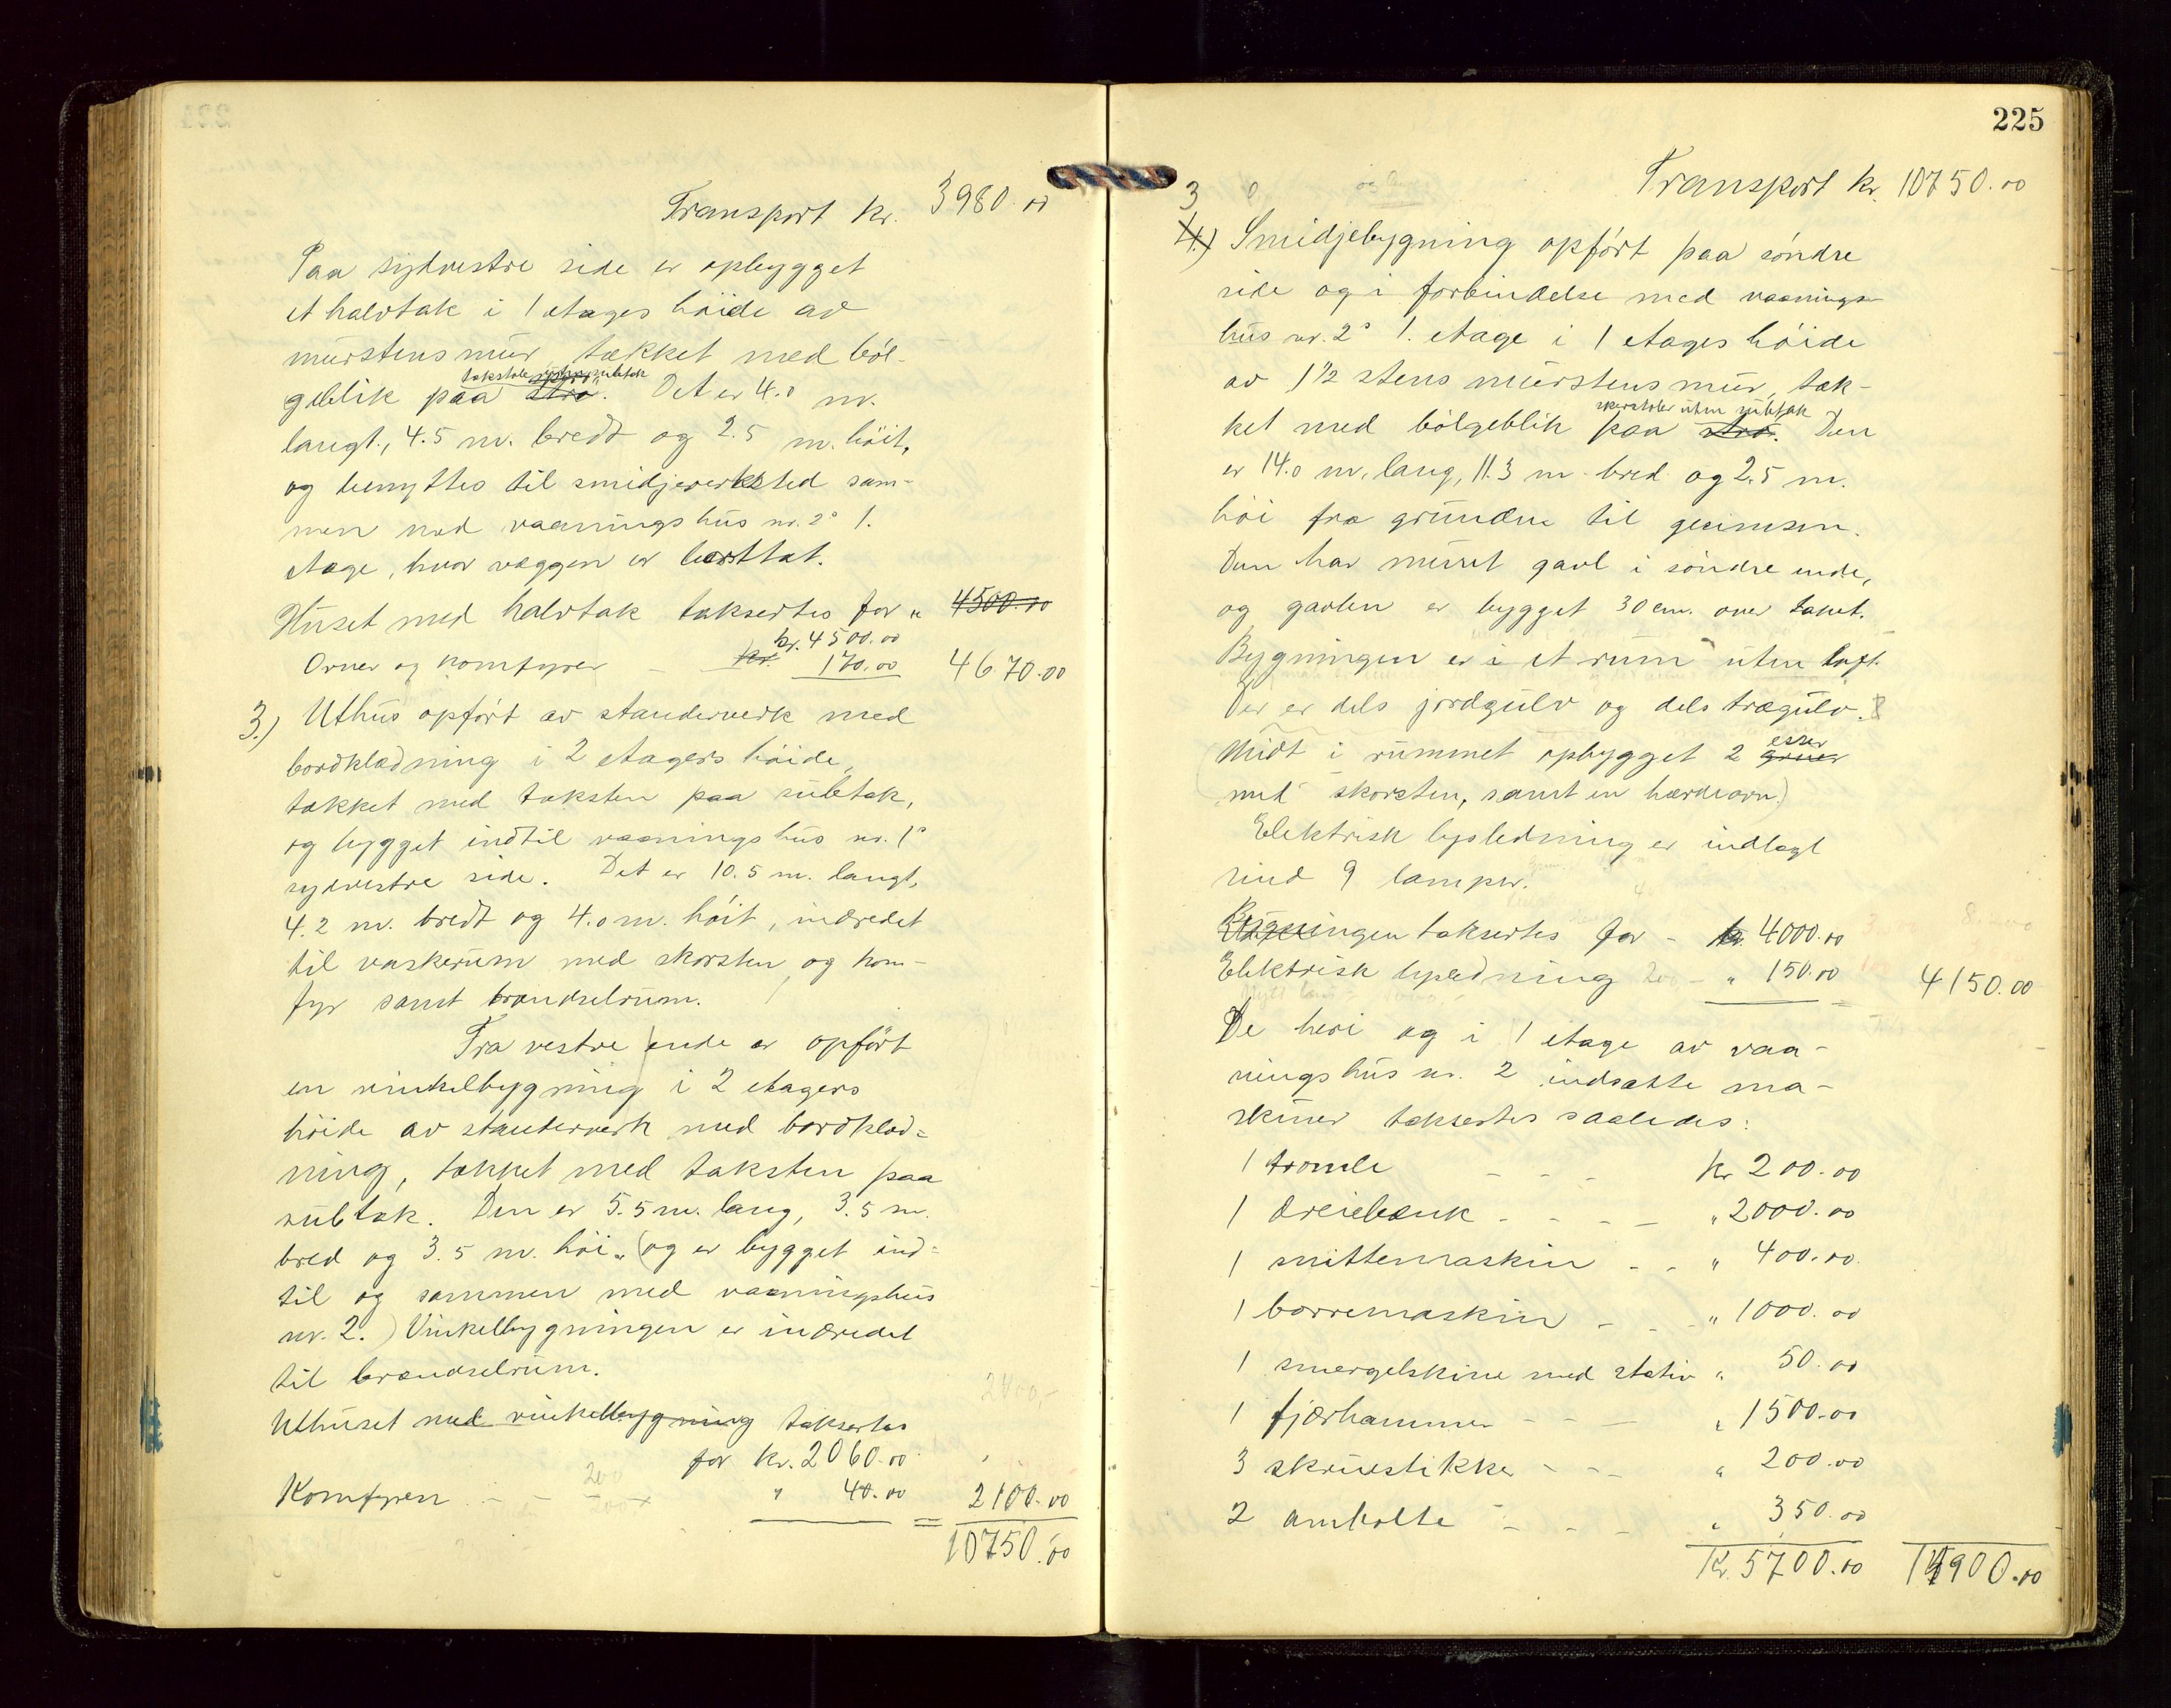 Transport kr. 3980.00
Paa sydvestre side er opbygget
et halvtak i 1 etages höide av
murstensmur, tækket med böl-
takstole uten subtak
geblik paa stro. Det er 4.0 m.
langt, 4.5 m. bredt og 2.5 m. höit,
og benyttes til smidjeverksted sam-
men med vaaningshus nr. 2s 1.
etage, hvor væggen er borttat.
Huset med halvtak takseres for " 4500.00
kr. 4500.00
Ovner og komfyrer - kr. 170.00 4670.00
3.) Uthus opfört av standerverk med
bordklædning i 2 etagers höide,
tækket med taksten paa subtak,
og bygget indtil vaaningshus nr. 1s
sydvestre side. Det er 10.5 m. langt,
4.2 m. bredt og 4.0 m. höit, indredet
til vaskerum med skorsten og kom-
fyr samt brændselrum.
Fra vestre ende er opfört
en vinkelbygning i 2 etagers
höide av standerverk med bordklæd=
ning, tækket med taksten paa
subtak. Den er 5.5 m. lang, 3.5 m.
bred og 3.5 m. höi. (og er bygget ind=
til og sammen med vaaningshus
nr. 2.) Vinkelbygningen er indredet
til brændselrum.
2400-
Uthuset med vinkelbygning takseres
for kr. 2060.00
Komfyren - - 200 " 40.00 = 2100.00
10750.00
225
Transport kr. 10750.00
3
4.) Smidjebygning opfört paa söndre
side og i forbindelse med vaanings-
hus nr. 2s 1. etage i 1 etages höide
av 1 1/2 stens murstensmur, tæk-
sperstoler uten subtak
ket med bölgeblik paa stro. Den
er 14.0 m. lang, 11.3 m bred og 2.5 m.
höi fra grunden til gesimsen.
Den har muret gavl i söndre ende,
og gavlen er bygget 30 cm. over taket.
Bygningen er i et rum uten loft.
Der er dels jordgulv og dels trægulv.
esser
(Midt i rummet opbygget 2 gruer
med skorsten, samt en hærdeovn.)
Elektrisk lysledning er indlagt
med 9 lamper.
Bygningen takseres for - kr. 4000.00
Elektrisk lysledning 200 - " 150.00 = 4150.00
De heri og i 1 etage av vaa-
ningshus nr. 2 indsatte ma-
skiner takseres saaledes:
1 tromle - - - kr 200.00
1 dreiebænk - - - - " 2000.00
1 snittemaskin - - " 400.00
1 borremaskin - - - " 1000.00
1 smergelskive med stativ " 50.00
1 fjærhammer - - - " 1500.00
3 skruestikker - - - " 200.00
2 ambolte - - - " 350.00
Kr. 5700.00 14900.00